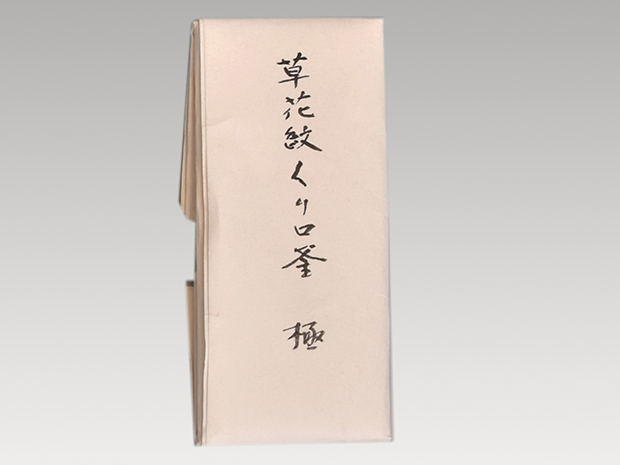 草花紋くり口釜 極